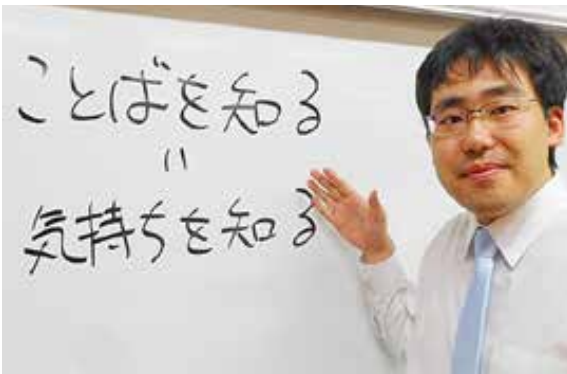 ことばを知る
=
気持ちを知る